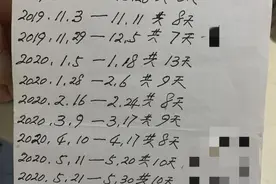 2019.11.3—11.11共8天
2019.11.29—12.5共7天
2020.1.5—1.18共13天
2020.1.28—2.6共9天
2020.2.16—2.24共8天
2020.3.9—3.17共9天
2020.4.10—4.17共8天
2020.5.11—5.20共10天
2020.5.21—5.30共10天